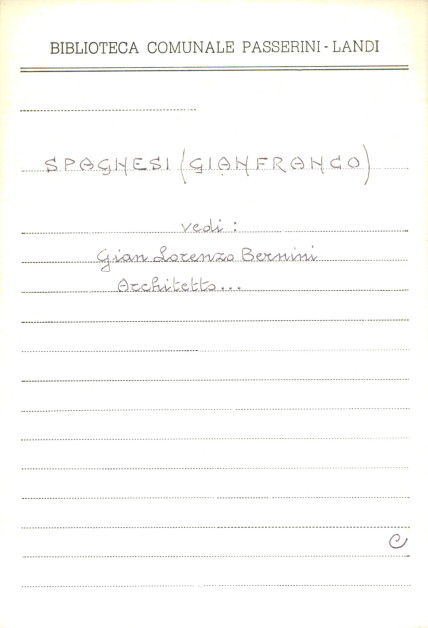 BIBLIOTECA COMUNALE PASSERINI - LANDI
SPAGNESI (GIANFRANCO)
vedi :
Gian Lorenzo Bernini
Architetto...
C